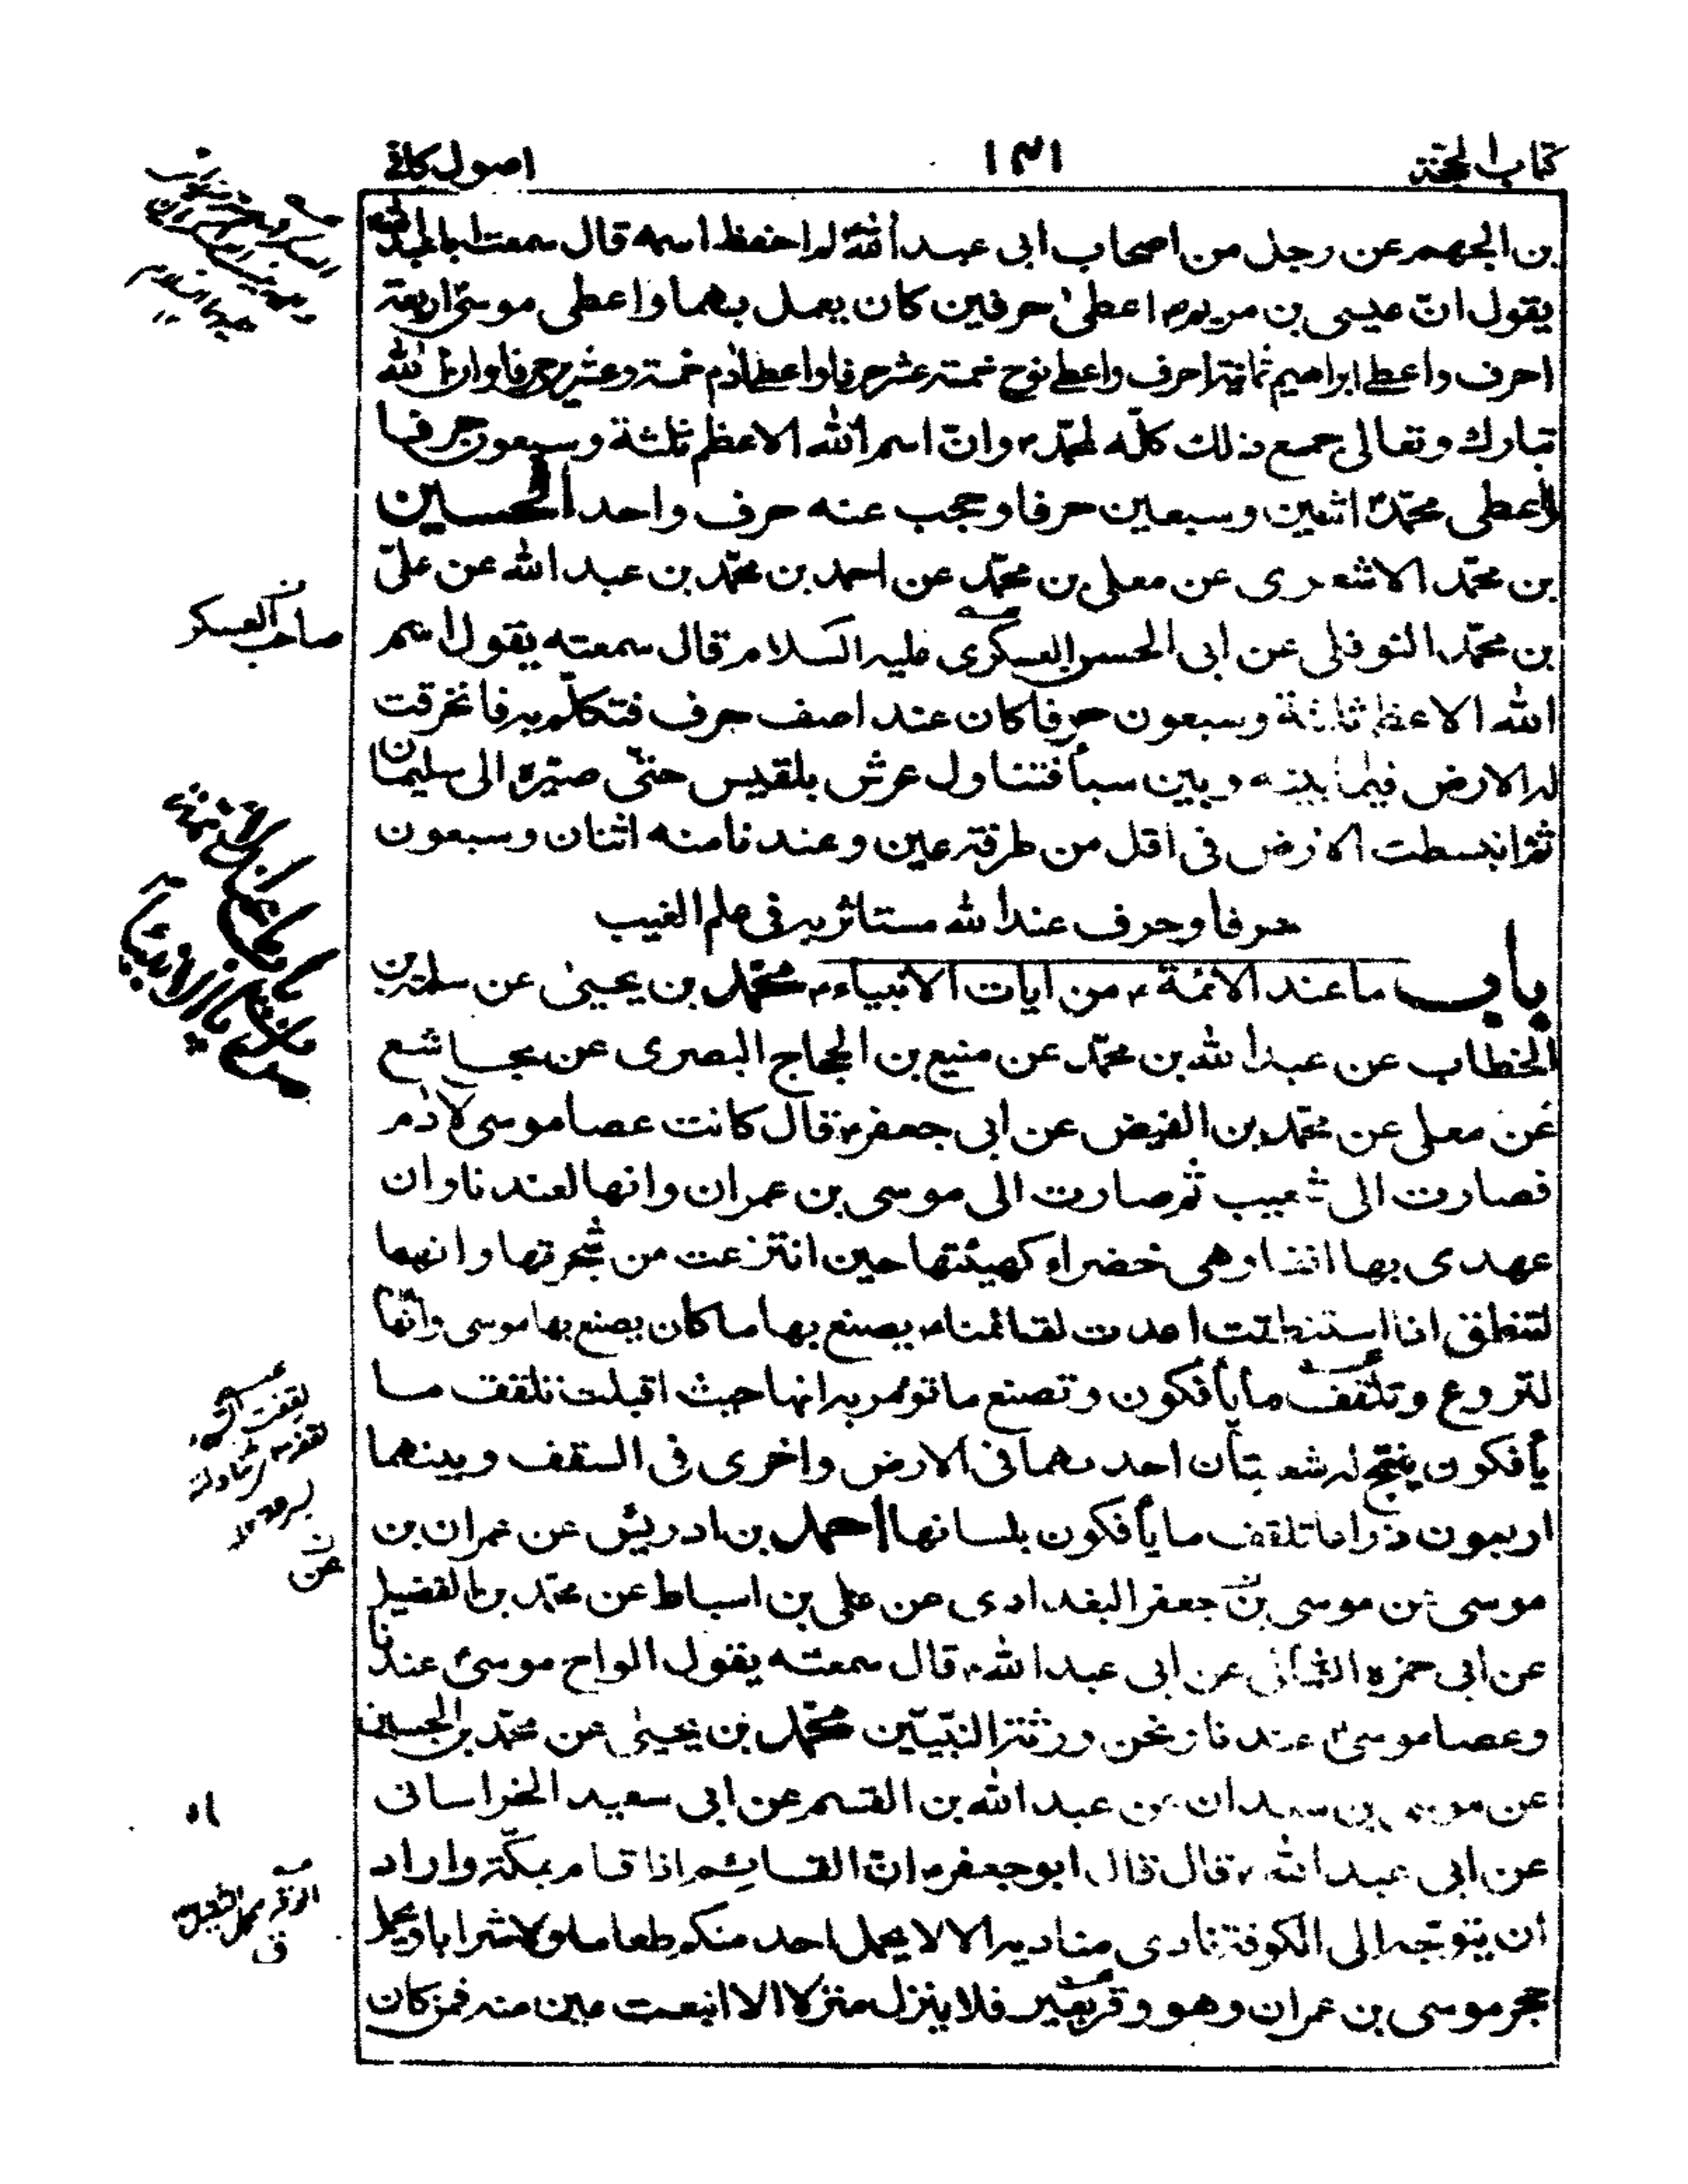 كتاب الحجة
١٤١
اصول كافى
بن الجهم عن رجل من اصحاب ابى عبد الله لم احفظ اسمه قال سمعت اباعبدالله
يقول ان عيسى بن مريم اعطى حرفين كان يعمل بهما واعطى موسى اربعة
احرف واعطى ابراهيم ثمانية احرف واعطى نوح خمسة عشر حرفا واعطى ادم خمسة وعشرين حرفا وان الله
تبارك وتعالى جمع ذلك كلّه لمحمّد وانّ اسم الله الاعظم ثلثة وسبعون حرفا
اعطى محمّد اثنين وسبعين حرفا وحجب عنه حرف واحد الحسين
بن محمّد الاشعرى عن معلى بن محمّد عن احمد بن محمّد بن عبد الله عن علىّ
بن محمّد النوفلى عن ابى الحسن العسكرى عليه السلام قال سمعته يقول اسم
صاحب العسكر
الله الاعظم ثلثة وسبعون حرفا كان عند اصف حرف فتكلّم به فانخرقت
له الارض فيما بينه وبين سبأ فتناول عرش بلقيس حتّى صيّره الى سليمان
ثم انبسطت الارض فى اقل من طرفة عين وعندنا منه اثنان وسبعون
حرفا وحرف عند الله مستاثر به فى علم الغيب
باب ما عند الائمّة من ايات الانبياء محمّد بن يحيى عن سلمة بن
الخطاب عن عبد الله بن محمّد عن منيع بن الحجاج البصرى عن مجاشع
عن معلى عن محمّد بن الفيض عن ابى جعفر قال كانت عصا موسى لادم
فصارت الى شعيب ثم صارت الى موسى بن عمران وانها لعندنا وان
عهدى بها انفا وهى خضراء كهيئتها حين انتزعت من شجرتها وانها
لتنطق اذا استنطقت اعدت لقائمنا يصنع بها ما كان يصنع بها موسى وانّها
لتروع وتلقف ما يأفكون وتصنع ما تؤمر به انها حيث اقبلت تلقف ما
يأفكون يفتح له شعبتان احديهما فى الارض واخرى فى السقف وبينهما
اربعون ذراعا تلقف ما يأفكون بلسانها احمد بن ادريس عن عمران بن
عن
موسى عن موسى بن جعفر البغدادى عن على بن اسباط عن محمّد بن الفضيل
عن ابى حمزه الثمالى عن ابى عبد الله قال سمعته يقول الواح موسى عندنا
وعصا موسى عندنا ونحن ورثة النّبيّين محمّد بن يحيى عن محمّد بن الحسين
عن موسى بن سعدان عن عبد الله بن القسم عن ابى سعيد الخراسانى
عن ابى عبد الله قال قال ابو جعفر انّ القائم اذا قام بمكّة واراد
ان يتوجّه الى الكوفة نادى مناديه الا لا يحمل احد منكم طعاما ولا شرابا ويحمل
حجر موسى بن عمران وهو وقر بعير فلا ينزل منزلا الا انبعث عين منه فمن كان